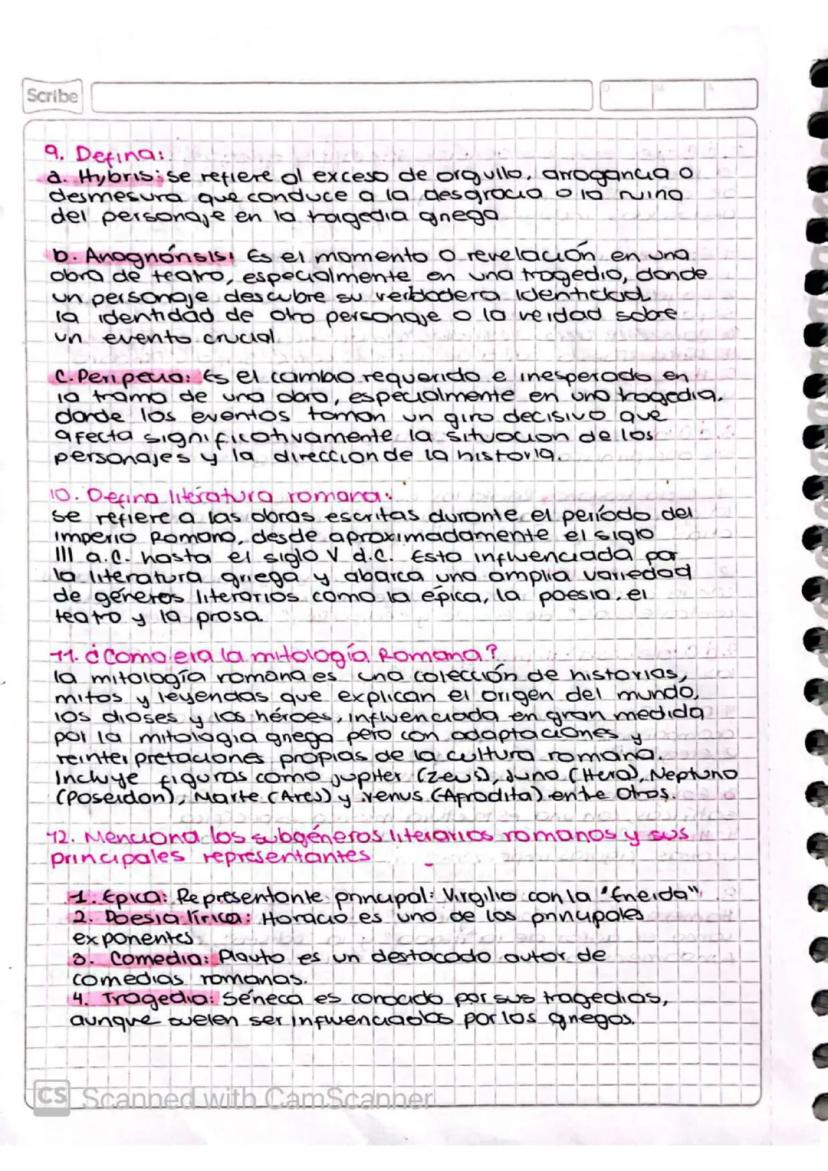 Scribe
9. Defina:
a. Hybris: se refiere al exceso de orgullo, arrogancia o
desmesura que conduce a la desgracia o la ruina
del personaje en la tragedia griega
b. Anagnónsis: Es el momento o revelación en una
obra de teatro, especialmente en una tragedia, donde
un personaje descubre su verdadera identidad
la identidad de otro personaje o la verdad sobre
un evento crucial
C. Peripecia: Es el cambio requerido e inesperado en
la trama de una obra, especialmente en una tragedia,
donde los eventos toman un giro decisivo que
afecta significativamente la situacion de los
personajes y la direccion de la historia.
10. Defina literatura romana:
se refiere a las obras escritas durante el período del
Imperio Romano, desde aproximadamente el siglo
III a.C. hasta el siglo V d.C. Esta influenciada por
la literatura griega y abarca una amplia variedad
de géneros literarios como la épica, la poesia, el
teatro y la prosa.
11. ¿Como era la mitología Romana?
la mitología romana es una colección de historias,
mitos y leyendas que explican el origen del mundo,
los dioses y los héroes, influenciada en gran medida
por la mitologia griega pero con adaptaciones y
reinterpretaciones propias de la cultura romana.
Incluye figuras como Jupiter (Zeus), Juno (Hera), Neptuno
(Poseidon), Marte (Ares) y Venus (Aprodita) entre otros.
12. Menciona los subgéneros literarios romanos y sus
principales representantes
1. Epica: Representante principal: Virgilio con la "Eneida"
2. Poesia lírica: Horacio es uno de los principales
exponentes
3. Comedia: Plauto es un destacado autor de
comedias romanas.
4. Tragedia: Séneca es conocido por sus tragedias,
aunque suelen ser influenciados por los griegos.
CS Scanned with CamScanner